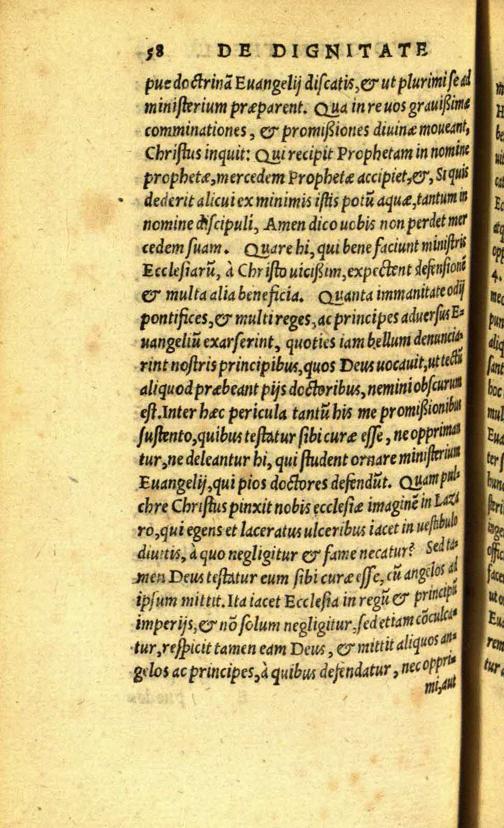 58 DE DIGNITATE
pue doctrinã Euangelij discatis,& ut plurimi se ad
ministerium præparent. Qua in re uos grauißimæ
comminationes, & promißiones diuinæ moueant,
Christus inquit: Qui recipit Prophetam in nomine
prophetæ,mercedem Prophetæ accipiet,&, Si quis
dederit alicui ex minimis istis potũ aquæ,tantum in
nomine discipuli, Amen dico uobis non perdet mer
cedem suam. Quare hi, qui bene faciunt ministris
Ecclesiarũ, à Christo uicißim,expectent defensionẽ
& multa alia beneficia. Quanta immanitate odij
pontifices,& multi reges, ac principes aduersus E-
uangeliũ exarserint, quoties iam bellum denuncia-
rint nostris principibus,quos Deus uocauit,ut tectũ
aliquod præbeant pijs doctoribus,nemini obscurum
est.Inter hæc pericula tantũ his me promißionibus
sustento,quibus testatur sibi curæ esse, ne oppriman
tur,ne deleantur hi, qui student ornare ministerium
Euangelij,qui pios doctores defendũt. Quam pul-
chre Christus pinxit nobis ecclesiæ imaginẽ in Laza
ro,qui egens et laceratus ulceribus iacet in uestibulo
diuitis, à quo negligitur & fame necatur? Sed ta-
men Deus testatur eum sibi curæ esse, cũ angelos ad
ipsum mittit. Ita iacet Ecclesia in regũ & principũ
imperijs,& nõ solum negligitur,sed etiam cõculca-
tur,respicit tamen eam Deus, & mittit aliquos an-
gelos ac principes,à quibus defendatur, nec oppri-
mi,aut